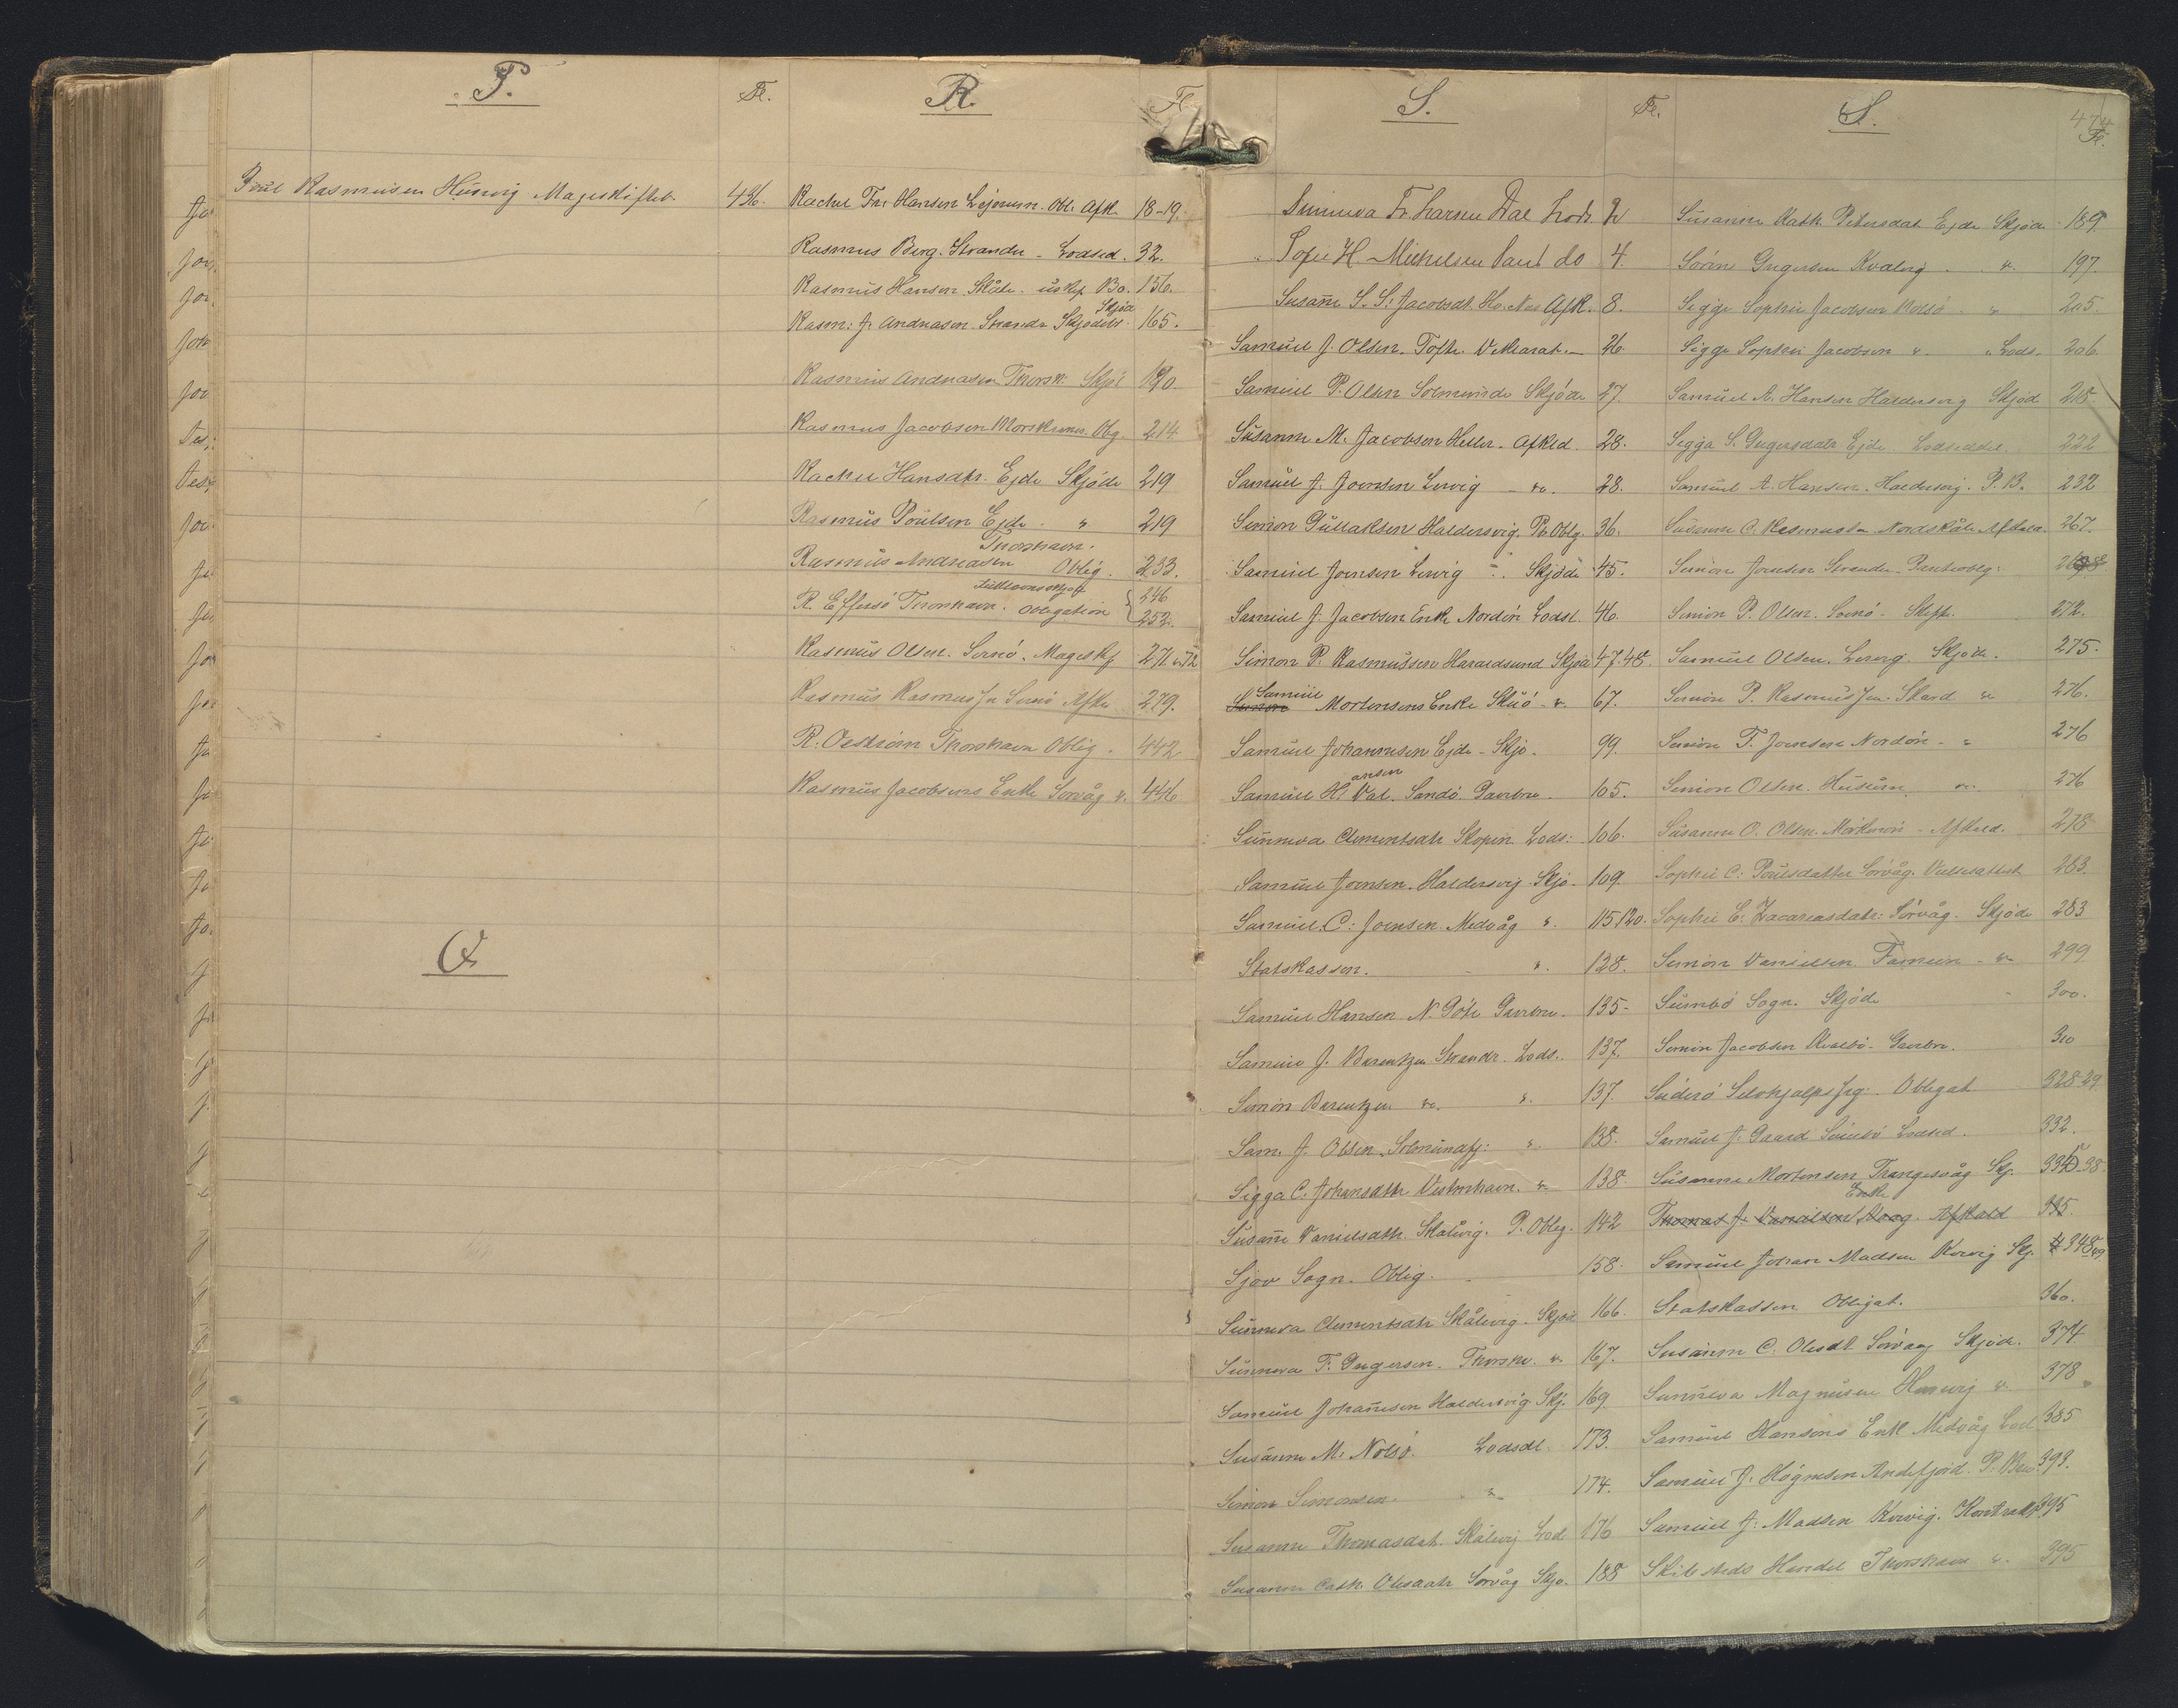 P.
Fl.
Poul Rasmussen Húsevig Mageskifteb. 436.
Q
R.
Fl
Rachel Fr. Hansen Lejorum. Obl. Afk. 18-19.
Rasmus Berg. Strander - Lodsed. 32.
Rasmus Hansen Skåle. uskf. Bo. 156.
Skjøde
Rasm: J. Andreasen Strandr Skjødebr. 165.
Rasmus Andreasen Thorsh: Skjø 190
Rasmus Jacobsen Morskranes. Obg. 214
Rachel Hansdtr. Ejde Skjöde 219
Rasmus Poulsen Ejde " 219
Thorshavn.
Rasmus Andreasen Oblig. 233.
R. Effersö Thorshavn. Obligation 246
252.
Rasmus Olsen. Svinö. Mageskf 271 & 72
Rasmus Rasmussen Svinö Afk. 279.
R. Oeström Thorshavn Oblig. 442
Rasmus Jacobsens Enke Sorvåg " 446
S.
Fl.
Sunneva Fr. Larsen Dal Lods. 2
Sofie H. Michelsen Sand do 4.
Susane S. S. Jacobsdt. Ho. Nes Afk. 8.
Samuel J. Olsen. Tofte. 26.
Samuel P. Olsen Solmunde Skjöde 27.
Súsanne M. Jacobsen Heller. Afkld. 28.
Samúel J. Joensen Lervig - " . 28.
Simon Gúllaksen Haldersvig. Pr. Oblg. 36.
Samúel Joensen Lervig " . Skjöde 45.
Samúel J. Jacobsen Enke Nordön Lodsl. 46.
Simon P. Rasmússen Haraldsund Skjöd 47.48.
Samúel
Simon Mortensens Enke Skúö - " . 67.
Samúel Johannesen Ejde - Skjö. 99.
ansen
Samúel H. Dal. Sandö. Gavebre. 105.
Sunneva Clementsdtr Skopen Lods: 106.
Samúel Joensen. Haldersvig Skjö. 109.
Samúel. C: Joensen. Medvåg " . 115.120.
Statskassen. " . 128.
Samúel Hansen N. Göte Gavebre. 135-
Samúel J. Berentzen Strandr. Lods. 137.
Simon Berentzen " . " . 137.
Sam. J. Olsen. Solmundfj: " . 138.
Sigga C. Johansdtr Vestmhavn. " 138.
Súsane Danielsdtr. Skalevig. P. Oblg. 142
Sjov Sogn. Oblig. 158.
Súnneva Clementsdtr Skålevig. Skjöd 166.
Súnneva F. Gregersen. Thorshv. " 167.
Samúel Johanesen Haldersvig Skj. 169
Susanne M. Nolsö. Lodsdl. 173.
Simon Simonsen. " 174.
Susanne Thomasdat. Skålevig Lod. 176
Susanne Cath. Olesdtr Sorvåg Skjø. 188
S.
474
Fl.
Súsanne Kath. Petersdat. Ejde Skjöde. 189
Sören Gregersen Kvalvig. " . 197.
Sigge Sophie Jacobsen Nolsö. " 205.
Sigge Sophie Jacobsen " . " Lods. 206.
Samúel A. Hansen Haldersvig Skjöd 218.
Sigga S. Gregersdatr Ejde. Lodseddel. 222
Samúel A. Hansen. Haldersvig. P. B. 232
Súsanne C. Rasmusdtr Nordskåle Afkald. 267.
Simon Joensen Strander. Panteoblg: 268
Simon P. Olsen. Svinö. Skifte. 272.
Samúel Olsen. Lervig. Skjöde. 275.
Simon P. Rasmussen. Skard " 276.
Simon F. Joensen Nordön. " 276
Simon Olsen. Húsúm " . 276
Súsanne O. Olsen. Mörkeröre. Afkald. 278
Sophie C: Poulsdatter Sörvåg. 283.
Sophie E. Zacariasdatr: Sörvåg. Skjöde 283
Simon Danielsen Famien - " 299
Súmbö Sogn. Skjöde 300.
Simon Jacobsen Kvalbö. Gavebr. 310
Súderö Selvhjælpsfrg: Obligat 328-29.
Samúel J. Gaard Súmbö Lodsed. 332.
Súsanne Mortensen Trangisvåg Skj. 335-38.
Enke
Thomas J. Danielsen Vaag. Afkald 335.
Samúel Johan Madsen Kvivig Skj. 348
Statskassen Obligat. 360.
Susanne C. Olesdt. Sörvaag Skjöde. 374
Sunneva Magnusen Húsevig " . 378
Samúel Hansens Enke Midvåg Lod. 385
Samuel J. Högnesen Andefjord. P. Brev. 393.
Samúel J. Madsen Kvivig. Kontrakt 395
Skibsteds Handel Thorshavn " . 395